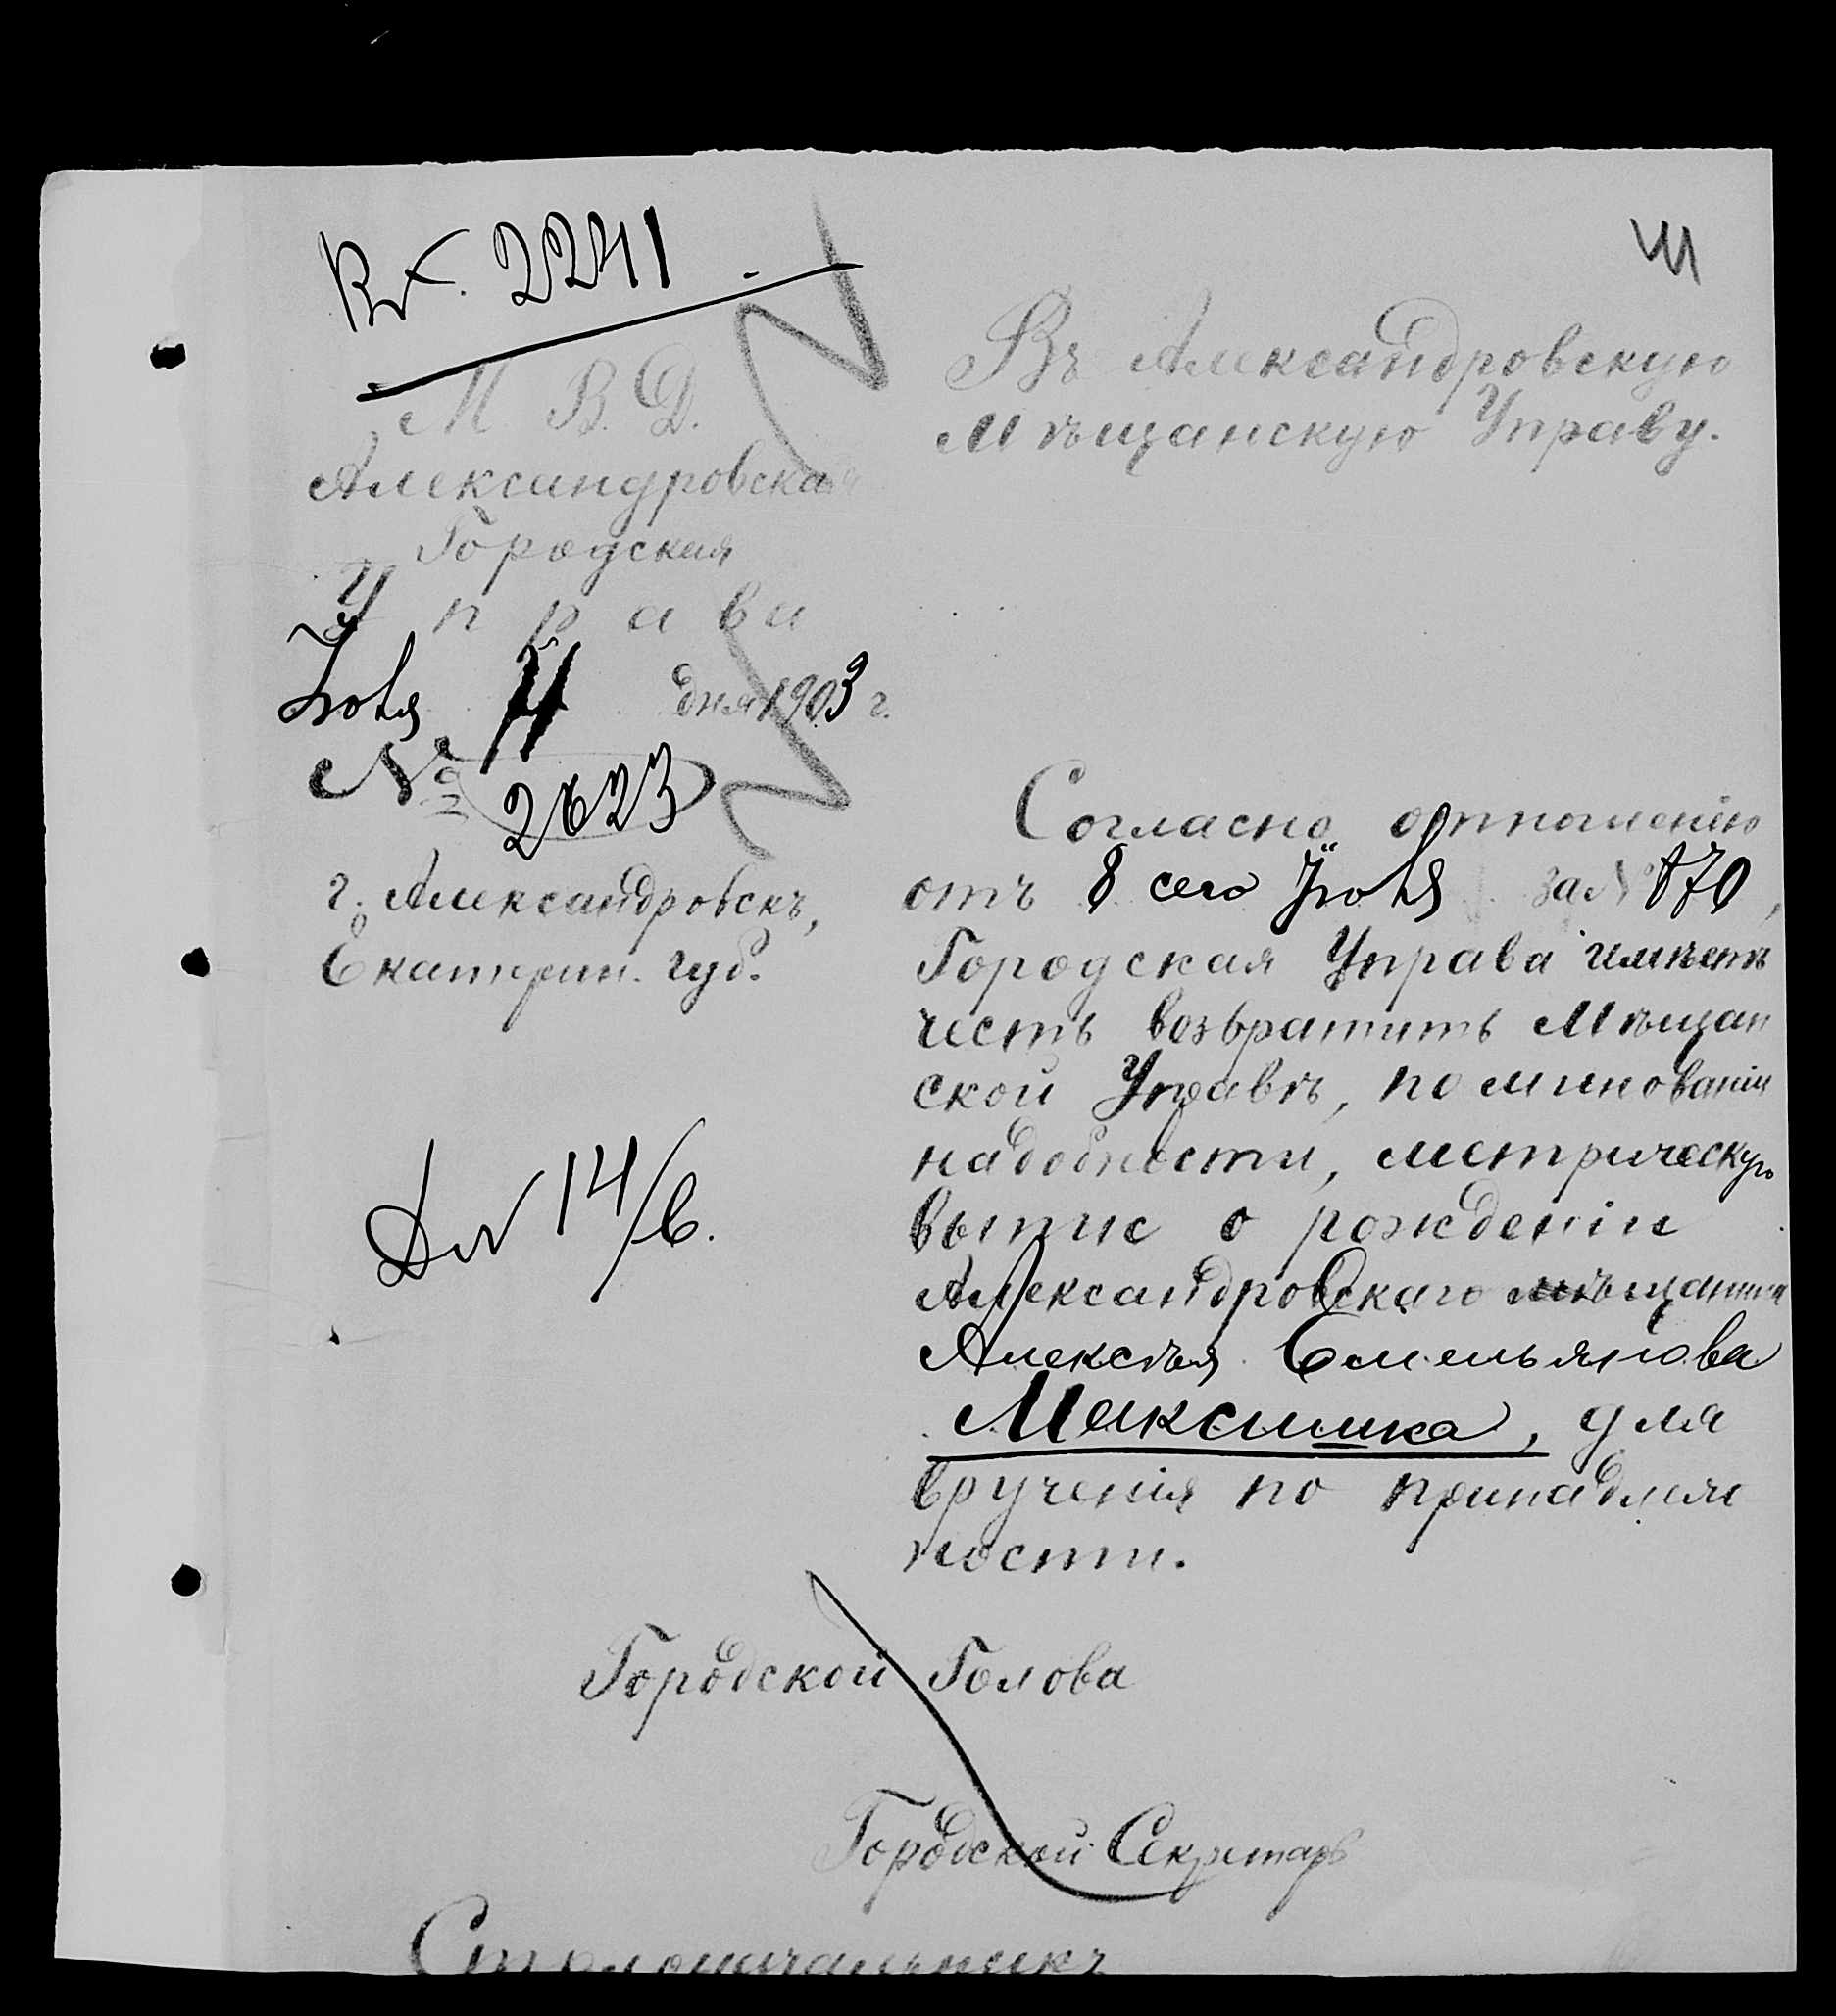 Вх. 2241
41
М. В. Д.
Александровская
Городская
Управа
Іюня 11 дня 1903 г.
№ 2623
г. Александровскъ,
Екатерин. губ.
14/6.
Въ Александровскую
Мѣщанскую Управу.
Согласно отношенію
отъ 8 сего Іюня за № 870,
Городская Управа имѣетъ
честь возвратить Мѣщан
ской Управѣ, по минованіи
надобности, метрическую
выпис о рожденіи
Александровскаго мѣщанина
Алексѣя Емельянова
Максимка, для
врученія по принадлеж
ности.
Городской Голова
Городской Секретарь
Столоначальникъ